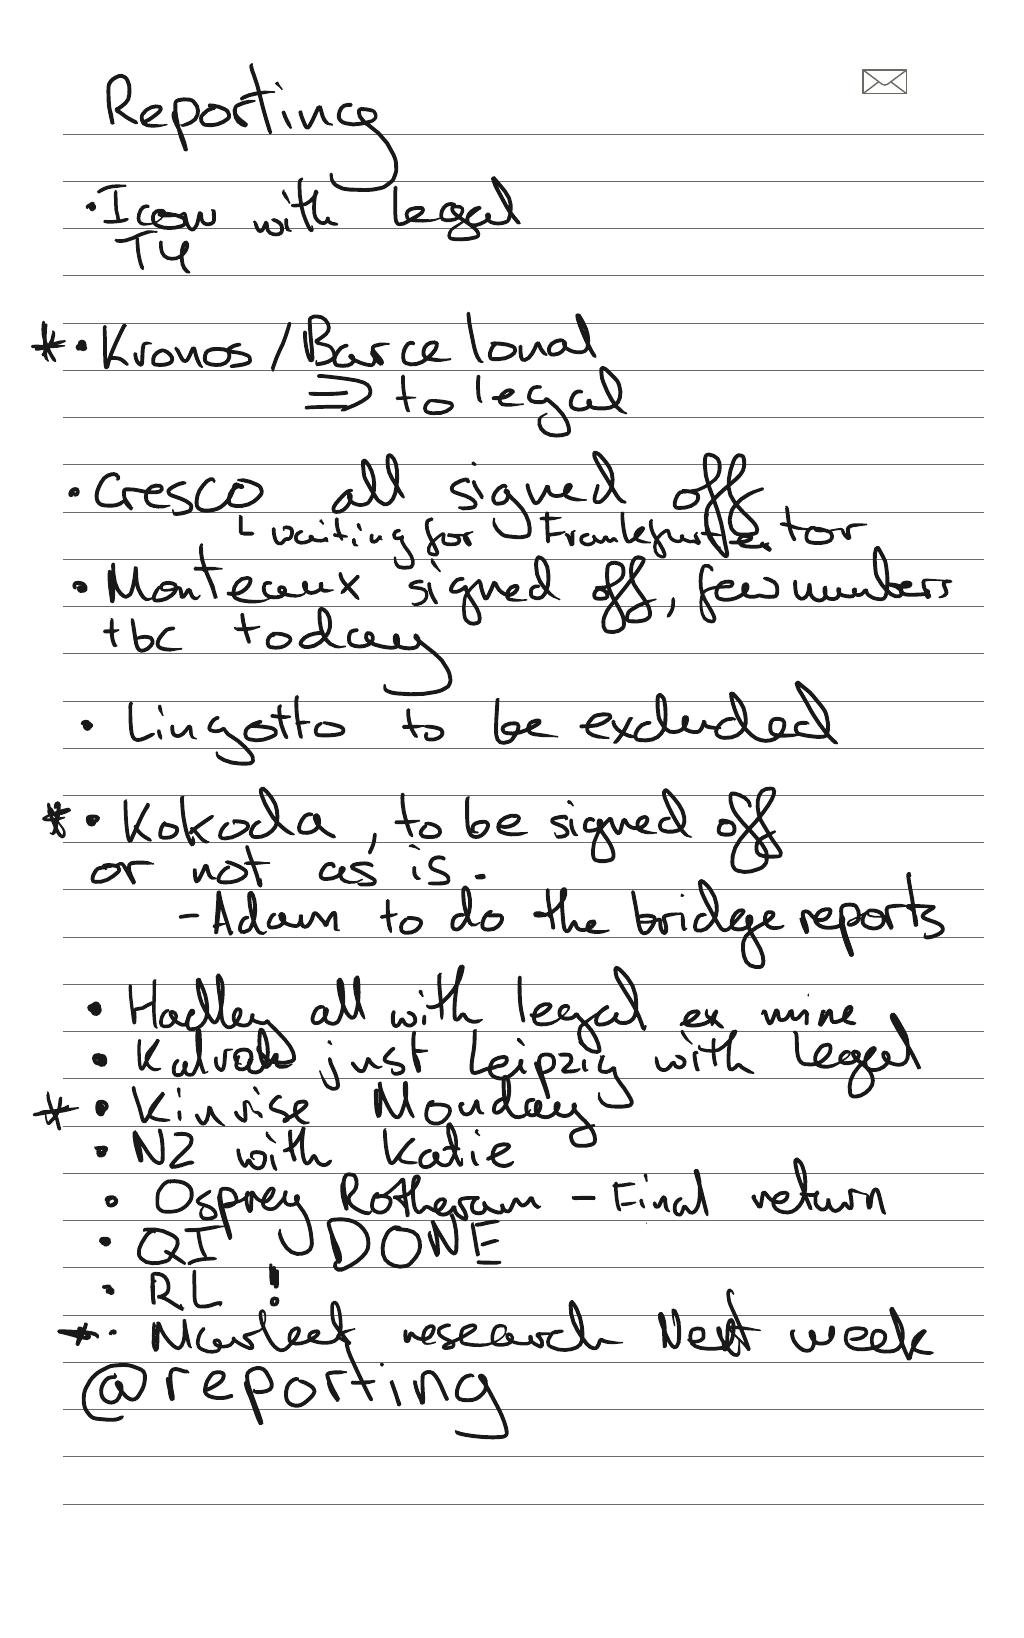 Reporting
• Icon with legal
T4
* • Kronos / Barcelonal
⇒ to legal
• Cresco all signed off
└ waiting for Frankfurt tor
• Monteaux signed off, few numbers
tbc today
• Lingotto to be excluded
* • Kokoda, to be signed off
or not as is.
- Adam to do the bridge reports
• Hadley all with legal ex mine
• just Leipzig with legal
* • Kinrise Monday
• NZ with Katie
• Osprey Rotheram - Final return
• QI DONE
• RL !
* • Market research Next week
@reporting